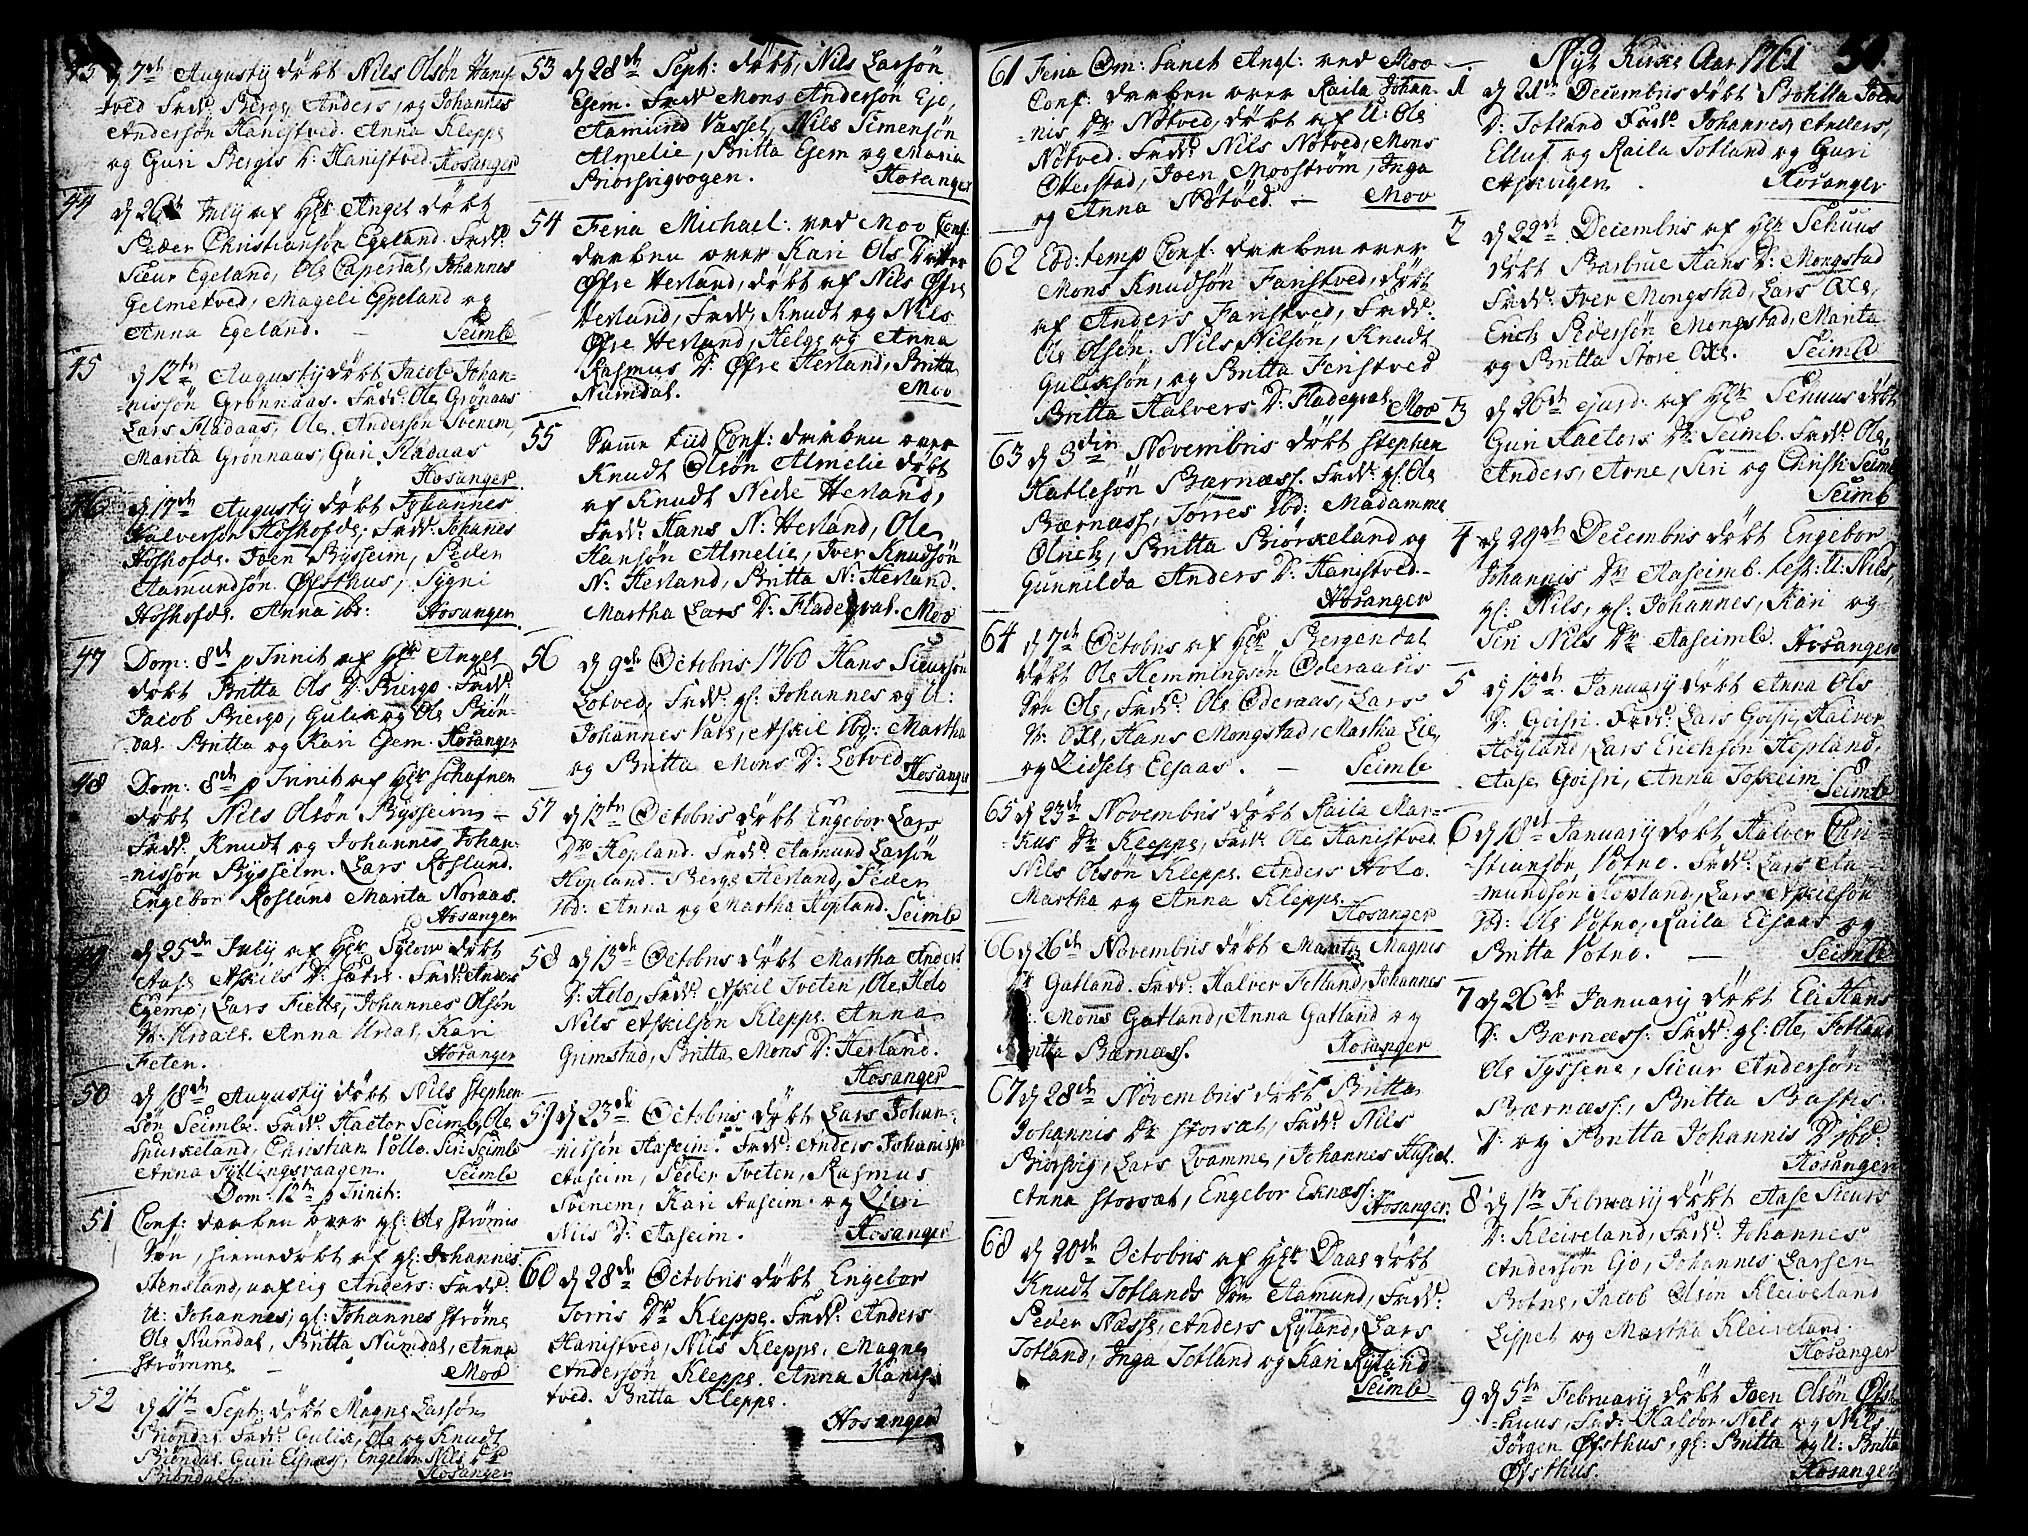 43 d 7de Augustij døbt Nils Olsøn Hanis-
tved Fadd: Berge, Anders, og Johannes
Andersøn Hanistved. Anna Kleppe
og Guri Bergis D: Hanistved. Hosanger
44 d 26de Julij af Hr Angel døbt
Peder Christiansøn Egeland. Fadd:
Siur Egeland, Ole Caperdal, Johannes
Gelmetved, Mageli Egeland og
Anna Egeland. Seimb
45 d 12te Augustij døbt Jacob Johan-
nissøn Grønnaas. Fadd: Ole Grønaas
Lars Fladaas, Ole Andersøn Toenem,
Marita Grønnaas, Guri Fladaas
Hosanger
46 d 17de Augustij døbt Johannes
Halversøn Hoshofde, Fadd: Johanes
Hoshofde. Joen Bysseim, Peder
Aamundsøn Øvsthus, Sygni
Hoshofde. Anna ibd: Hosanger
47 Dom: 8de p Trinit af Hr Angel
døbt Britta Ols D: Biergo. Fadd:
Jacob Biergo, Gulik og Ole Biøn-
dal. Britta og Kari Esem. Hosanger
48 Dom: 8de p Trinit af Hr Schafner
døbt Nils Olsøn Bysseim -
Fadd: Knudt og Johannes Johan-
nissøn Bysseim. Lars Rosland.
Engebor Rosland Marita Noraas.
Hosanger
49 d 25de Julij af Hr Sylow døbt
Aase Askils D: Fadd: Anders
Lars Fiette, Johannes Olsøn
Anna Urdal, Kari
Feten. Hosanger
50 d 18de Augustij døbt Nils Stephen-
søn Seimb. Fadd: Hactor Seimb, Ole
Spurkeland, Christian Vollo. Siri Seimb
Anna Syltingsvaagen. Seimb
Dom: 12te p Trinit:
51 Conf: daaben over gl: Ole Strømis
Søn, hiemedøbt af gl: Johannes
Stensland, nafnlig Anders: Fadd:
U: Johannes, gl: Johannes Strøme
Ole Numdal, Britta Numdal, Anna
Strømme - Moo
52 d 11te Sept: døbt Magne Larsøn
Biøndal. Fadd: Gulik, Ole og Knudt
Biøndal. Guri Eknes, Engebor Nils Dr
Biøndal. Hosanger
53 d 28de Sept: døbt, Nils Larsøn
Esem. Fadd Mons Andersøn Ejo,
Aamund Vassel, Nils Simensøn
Almelie, Britta Esem og Maria
Biørsvigvogen. Hosanger
54 Feria Michael: ved Moo Conf:
daaben over Kari Ols Datter
Øfre Herland, døbt af Nils Øfre
Herland, Fadd: Knudt og Nils
Øfre Herland, Helge og Anna
Rasmus D: Øfre Herland, Britta
Numdal. Moo
55 Samme tiid Conf: daaben over
Knudt Olsøn Almelie døbt
af Knudt Nedre Herland,
Fadd: Hans N: Herland, Ole
Hansøn Almelie, Iver Knudsøn
N: Herland, Britta N: Herland.
Martha Lars D: Fladequal. Moo
56 d 9de Octobris 1760 Hans Siursøn
Lotved, Fadd: gl: Johannes og U:
Johannes ibid, Askil ibd: Martha
og Britta Mons D: Lotved Hosanger
57 d 12te Octobris døbt Engebor Lars
Dr Hopland. Fadd: Aamund Larsøn
Hopland. Berge Herland, Peder
ibd: Anna og Martha Hopland. Seimb
58 d 13de Octobris døbt Martha Anders
D: Helo, Fadd: Askil Tveten, Ole Helo
Nils Askilsøn Kleppe. Anna
Grimstad, Britta Mons D: Herland.
Hosanger
59 d 23de Octobris døbt Lars Johan-
nissøn Aaseim. Fadd: Anders Johanissøn
Aaseim, Peder Tveten, Rasmus
Toenem, Kari Aaseim og Siri
Nils D: Aaseim. Hosanger
60 d 28de Octobris døbt Engebor
Torris Dr Kleppe. Fadd: Anders
Hanistved, Nils Kleppe, Magne
Andersøn Kleppe. Anna Hanis-
tved. Britta Kleppe.
Hosanger
61 Feria Om: Sanct Angl: ved Moo
Conf: daaben over Raila Johan-
nis Dr Nøtved, døbt af U: Ole
Nøtved. Fadd: Nils Nøtved, Mons
Otterstad, Joen Moostrøm, Inga
og Anna Nøtved. - Moo
62 Eod: temp Conf: daaben over
Mons Knudsøn Fanistved, døbt
af Anders Fanistved, Fadd:
Ole Olsen. Nils Nilsøn, Knudt
Guliksøn, og Britta Fenistved
Britta Halvers D: Fladequal. Moo
63 d 3die Novembris døbt Stephen
Katlesøn Bærnæss. Fadd: gl: Ole
Bærnæss, Torres ibd: Madamme
Olrich, Britta Biørkeland og
Gunnilda Anders D: Hanistved.
Hosanger
64 d 7de Octobris af Hr Bergendal
døbt Ole Hemmingsøn Oderaas
Søn Ole, Fadd: Ole Oderaas, Lars
Oxe, Hans Mongstad, Martha Lie
og Lidsele Elsaas. - Seimb
65 d 23de Novembris døbt Raila Mar-
kus Dr Kleppe, Fadd: Ole Hanistved.
Nils Olsøn Kleppe. Anders Holo.
Martha og Anna Kleppe.
Hosanger
66 d 26de Novembris døbt Marita Magnes
Dr Gatland. Fadd: Halver Totland, Johannes
Mons Gatland, Anna Gatland og
Britta Bærnæss. Hosanger
67 d 28de Novembris døbt Britta
Johannis Dr Storsæt, Fadd: Nils
Biørsvig, Lars Qvamme, Johannes Husæl.
Anna Storsæt, Engebor Eknæss. Hosanger
68 d 20de Octobris af Hr Daae døbt
Knudt Totlands Søn Aamund, Fadd:
Peder Næsse, Anders Ryland, Lars
Totland, Inga Totland og Kari Ryland
Seimb
Nyt Kirke Aar 1761 50.
1 d 21de Decembris døbt Bothilla Joens
D: Totland Fadd: Johannes, Anders,
Elluf og Raila Totland og Guri
Askvigen. Hosanger
2 d 22de Decembris af Hr Schuus
døbt Barbue Hans D: Mongstad
Fadd: Iver Mongstad, Lars Oxe,
Erich Mongstad, Marita
og Britta Store Oxe. Seimb
3 d 26de ejusd: af Hr Schuus døbt
Guri Hactors Dr: Seimb. Fadd: Ole,
Anders, Arne, Siri og Christi: Seimb
Seimb
4 d 29de Decembris døbt Engebor
Johannis Dr Aaseimb. test: U: Nils,
gl: Nils, gl: Johannes, Kari og
Siri Nils Dr Aaseimb. Hosanger
5 d 13de January døbt Anna Ols
D: Fadd: Lars Halver
Høyland, Lars Erichsøn Hopland,
Aase Anna Toskeim. Seimb
6 d 18de January døbt Halver Chri-
stiansøn Votno. Fadd: Lars Aa-
mundsøn Hopland, Lars Askilsøn
ibd: Ole Votno, Raila Elsaas og
Britta Votno. - Seimb
7 d 26de January døbt Eli Hans
D: Bærnæss: Fadd: gl: Ole, Totland
Ole Tyssene, Siur Andersøn
Bærnæss, Britta
D: og Britta Johannis D ibd:
Hosanger
8 d 1te February døbt Aase Siurs
D: Kleiveland, Fadd: Johannes
Andersøn Ejo, Johannes Larsen
Botne, Jacob Olsøn Kleiveland
Lispet og Martha Kleiveland.
Hosanger
9 d 5te February døbt Joen Olsøn Øfst-
huus, Fad: Haldor, Nils og Nils
Jørgen Øfsthus, gl: Britta Britta
Øfsthus. Hosanger